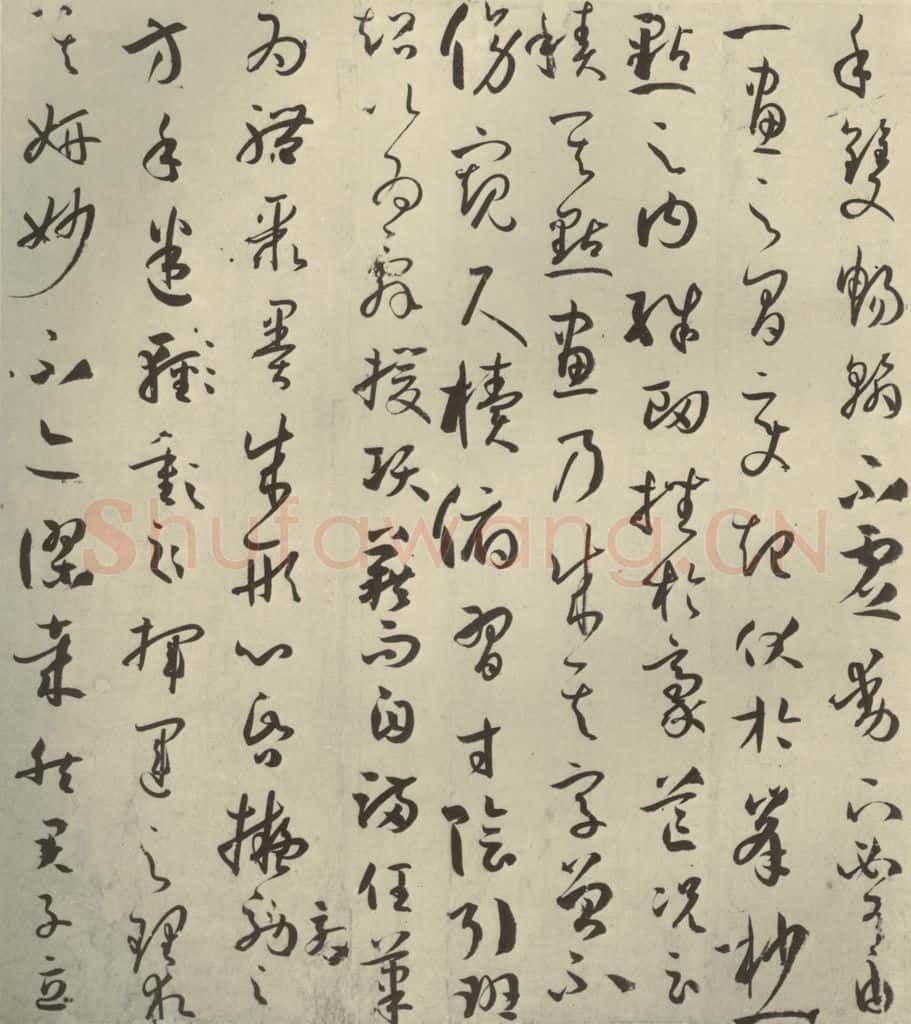 手雙暢翰不虛動下必有由
一畫之間變起伏於峯杪一
點之內殊衄挫於豪芒況云
積其點畫乃成其字曾不
傍窺尺牘俯習寸陰引班
超以為辭援項籍而自滿任筆
為體聚墨成形心昏擬效之
方手迷揮運之理求
其妍妙不亦謬哉然君子立
Shufawang.CN